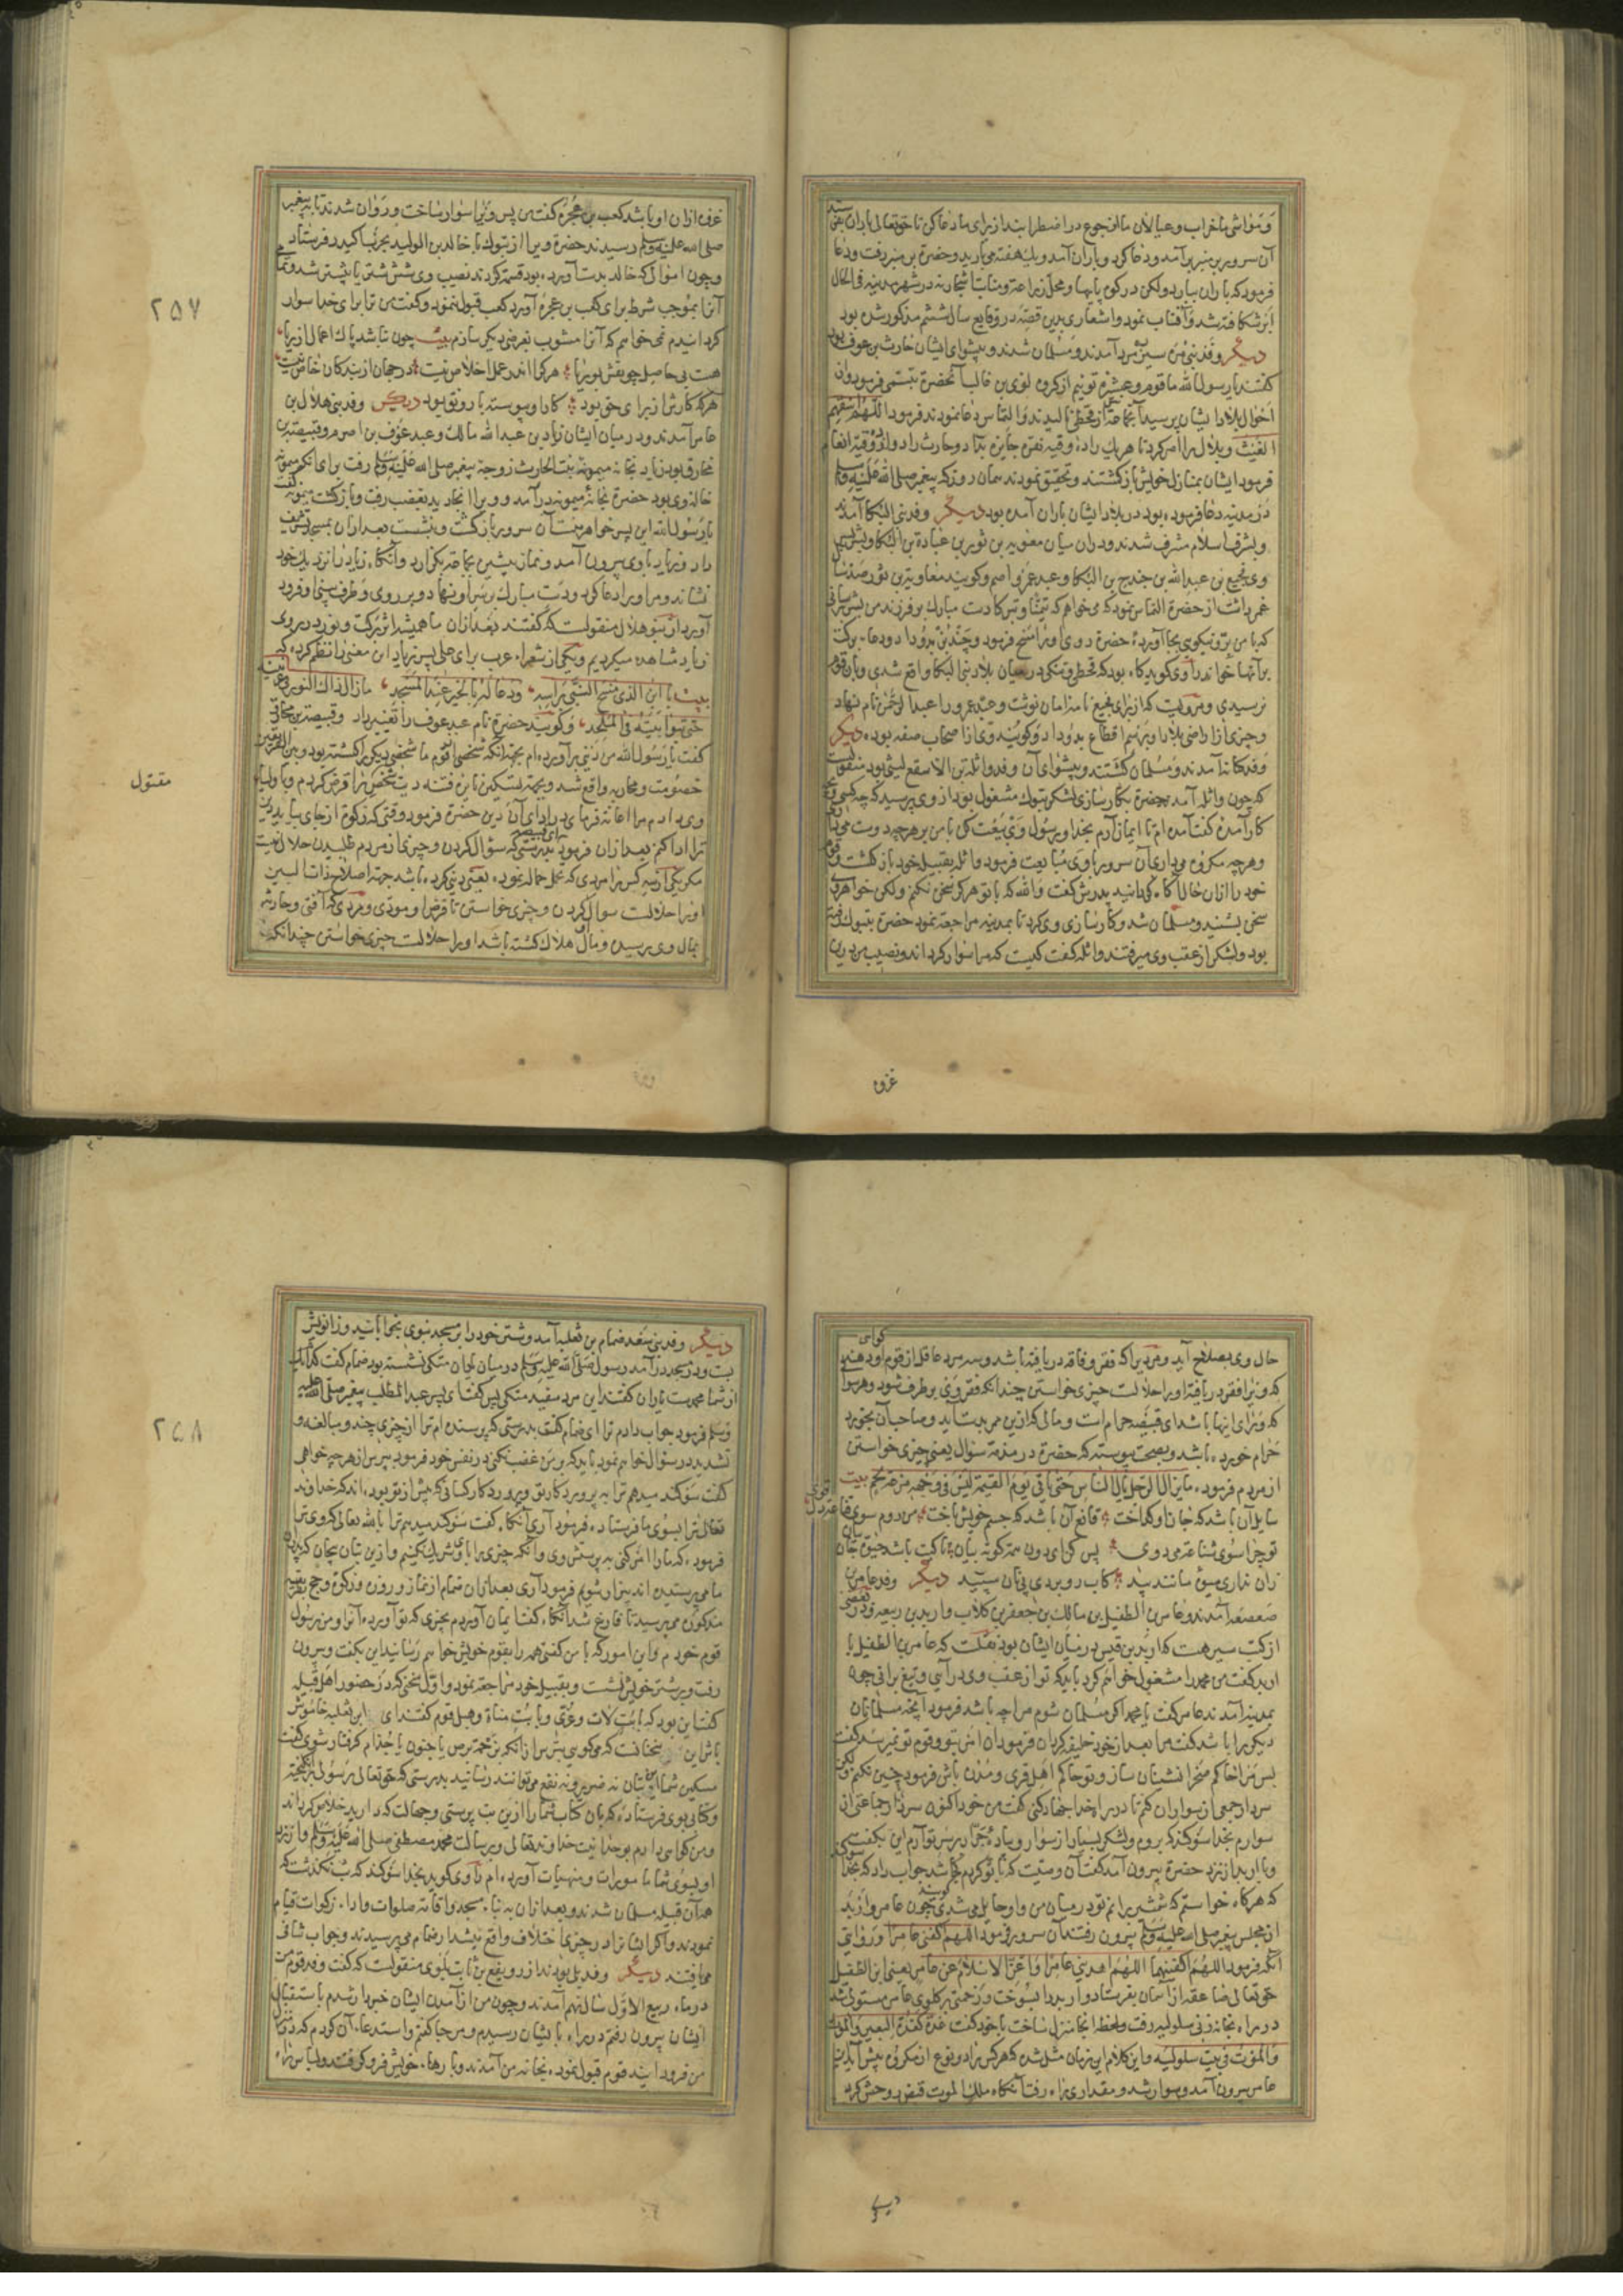 و مواشی ما خراب و عیالان ما از جوع در اضطراب‌اند از برای ما دعا کن تا حق تعالی باران
آن سرور بر منبر برآمد و دعا کرد و باران آمد و یک هفته می‌بارید و حضرة بر منبر رفت و دعا
فرمود که باران ببارد ولکن در کوه پایها و محل زراعة و منابت اشجار نه در شهر مدینه فی الحال
ابر شکافته شد و آفتاب نمود و اشعاری بدین قصّه در وقایع سال ششم مذکور شده بود
دیگر وفد بنی مره سیزده مرد آمدند و مسلمان شدند و پیشوای ایشان حارث بن عوف بود
گفتند یا رسول الله ما قوم و عشیرة توئیم از گروه لوی بن غالب آنحضرة تبسّمی فرمود و ازان
احوال بلاد ایشان پرسید آنجماعة از قحطی نالیدند و التماس دعا نمودند فرمود اللهم اسقهم
الغیث و بلال را امر کرد تا هریک را ده وقیه نقره جایزه بداد و حارث را دوازده وقیه انعام
فرمود ایشان بمنازل خویش بازگشتند و تحقیق نمودند همان روز که پیغمبر صلی الله علیه وسلم
در مدینه دعا فرموده بود در بلاد ایشان باران آمده بود دیگر وفد بنی البکا آمدند
و بشرف اسلام مشرف شدند و در ان میان معویه بن ثور بن عبادة بن البکا و پسرش
وی فجیع بن عبد الله بن جندح بن البکا و عبد عمرو اصم و کویند معاویة بن ثور صد سال
عمر داشت از حضرة التماس نمود که می‌خواهم که تیمّنا و تبرکا دست مبارک بر فرزند من بشر برسانی
که با من بر و نیکویی بجا آورده حضرة روی او را مسح فرمود و چند بز بدو داد و دعاء برکت
بر آنها خواند راوی گوید گاه بود که قحط و تنگی در میان بلاد بنی البکا واقع شدی و بان قوم
نرسیدی و مرویست که از برای فجیع نامه امان نوشت و عبد عمرو را عبد الرحمن نام نهاد
و چیزی از اراضی بلاد او برسم اقطاع بدو داد و گویند وی از اصحاب صفه بوده دیگر
وفد کنانه آمدند و مسلمان گشتند و پیشوای آن وفد واثلة بن الاسقع لیثی بود منقولست
که چون واثله آمد حضرة بکارسازی لشکر تبوک مشغول بود از وی پرسید که چه کسی و
کار آمده گفت آمده ام تا ایمان آرم بخدا و رسول وی بیعت کن با من بر هرچه دوست می‌داری
و هرچه مکروه می‌داری آن سرور با وی مبایعت فرمود واثله بقبیله خود بازگشت و قوم
خود را ازان حال آگاه گردانید پدرش گفت والله که با تو هرگز سخن نکنم ولکن خواهرش
سخن بشنید و مسلمان شد و کارسازی وی کرد تا بمدینه مراجعة نمود حضرة بتبوک رفته
بود و لشکر از عقب وی میرفتند واثله گفت کیست که مرا سوار گرداند و نصیب من درین
غزو
غزوه ازان او باشد کعب بن عجره گفت من پس ویرا سوار ساخت و روان شدند تا به پیغمبر
صلی الله علیه وسلم رسیدند حضرة ویرا از تبوک با خالد بن الولید بحرب اکیدر فرستاد
و چون اموالی که خالد بدست آورده بود قسمة کردند نصیب وی شش شتر یا بیشتر شد
آنرا بموجب شرط برای کعب بن عجره آورد کعب قبول ننمود و گفت من ترا برای خدا سوار
گردانیدم نمی‌خواهم که آنرا مشوب بغرضی دیگر سازم بیت چون نباشد پاک اعمال از ریا
هست بی حاصل چو نقش بوریا هرکرا اندر عمل اخلاص نیست در جهان از بندگان خاص نیست
هرکه کارش از برای حق بود کار او پیوسته با رونق بود دیگر وفد بنی هلال بن
عامر آمدند و در میان ایشان زیاد بن عبد الله مالک و عبد عوف بن اصرم و قبیصة بن
مخارق بود زیاد بخانه میمونه بنت الحارث زوجه پیغمبر صلی الله علیه وسلم رفت برای انکه میمونه
خاله وی بود حضرة بخانه میمونه درآمد و ویرا انجا دید بغضب رفت و بازگشت میمونه گفت
یا رسول الله این پسر خواهر منست آن سرور بازگشت و بنشست بعد ازان بمسجد تشریف
داد و زیاد با وی بیرون آمد و نماز پیشین بجماعة بگزارد و آنگاه زیاد را نزدیک خود
نشاند و مر او را دعا کرد و دست مبارک بر سر او نهاد و بر روی و طرف بینی او فرود
آورد از بنو هلال منقولست که گفتند بعد ازان ما همیشه اثر برکت و نور در روی
زیاد مشاهده میکردیم و یکی از شعراء عرب برای علی پسر زیاد این معنی را نظم کرده که
بیت یا ابن الذی مسح النبی براسه ودعا له بالخیر عند المسجد ما زال ذاک النور فی عرنینه
حتی تبوا بیته فی الملحد و گویند حضرة نام عبد عوف را تغییر داد و قبیصة بن مخارق
گفت یا رسول الله من دینی برآورده ام بجهة انکه شخصی از قوم ما شخصی دیگر را کشته بود و بین الفریقین
خصومت و محاربه واقع شد و بجهة تسکین نایره فتنه دیت شخص را قرض کردم و باولیاء
مقتول
وی دادم مرا اعانة فرمای در ادای آن دین حضرة فرمود وقتی که زکوة از جای بیاید دین
ترا ادا کنم بعد ازان فرمود بدرستی که سؤال کردن و چیزی از مردم طلبیدن حلال نیست
مگر یکی از سه کس را مردی که تحمل حماله نموده یعنی دینی کرده باشد جهة اصلاح ذات البین
اورا حلالست سوال کردن و چیزی خواستن تا قرض او مودّی و مردی که آفتی و حادثه
بمال وی برسیده و مال او هلاک گشته باشد او را حلالست چیزی خواستن چندانکه
۲۵۷
حال وی بصلاح آید و مردیرا که فقر و فاقه دریافته باشد و سه مرد عاقل از قوم او گواهی دهند
که ویرا فقر دریافته اورا حلالست چیزی خواستن چندانکه فقر وی برطرف شود و هر سوال
که ورای اینها باشد ای قبیصه حرام است و مالی که ازین ممر بدست آید و صاحب آن بخورد
حرام خورده باشد و بصحت پیوسته که حضرة در مذمة سؤال یعنی چیزی خواستن
از مردم فرموده ما یزال الرجل یسال الناس حتی یاتی یوم القیمة لیس فی وجهه مزعة لحم بیت
سایل آن باشد که جان او گداخت قانع آن باشد که جسم خویش باخت من دوم سوی قناعة
تو چرا سوی شناعة می‌دوی پس گدای دون همه گونه بیان تا کیت باشد جان
زان نداری میوه مانند بید کاب رو بردی پی نان سپید دیگر وفد عامر بن
صعصعه آمدند و عامر بن الطفیل بن مالک بن جعفر بن کلاب و اربد بن ربیعه و در بعضی
از کتب سیر هست که اربد بن قیس در میان ایشان بود نقلست که عامر بن الطفیل با
اربد گفت من محمد را مشغول خواهم کرد باید که تو از عقب وی درآیی و تیغ برانی چون
بمدینه آمدند عامر گفت یا محمد اگر مسلمان شوم مرا چه باشد فرمود آنچه مسلمانان
دیگر را باشد گفت مرا بعد از خود خلیفه گردان فرمود ان امر بتو و قوم تو نمیرسد گفت
پس مرا حاکم صحرا نشینان ساز و تو حاکم اهل قری و مدن باش فرمود چنین نکنم
سردار جمعی از سواران کنم تا در راه خدا جهاد کنی گفت من خود اکنون سردار جماعتی از
سوارم بخدا سوگند که بروم و لشکر بسیار از سوار و پیاده جمع بر سر تو آرم این بگفت
و با اربد از نزد حضرة بیرون آمد گفت آن وصیت که با تو کردم چه شد جواب داد که بخدا سوگند
که هرگاه خواستم که شمشیر برانم تو در میان من و او حایل می‌شدی گویند چون عامر و اربد
از مجلس پیغمبر صلی الله علیه وسلم بیرون رفتند آن سرور فرمود اللهم اکفنی عامرا و روایتی
آنکه فرمود اللهم اکفنیهما اللهم اهد بنی عامرا واغن الاسلام عن عامر یعنی ابن الطفیل
حق تعالی صاعقه از آسمان بفرستاد و اربد را بسوخت و زحمتی بر گلوی عامر مستولی شد
در راه بخانه زنی سلولیه رفت و لحظه انجا منزل ساخت با خود گفت غدة کغدة البعیر والموت
والموت فی بیت سلولیّه و این کلام این زمان مثل شده که هرکس را دو نوع از مکروه پیش آید
عامر بیرون آمد و سوار شد و مقداری راه رفت آنگاه ملک الموت قبض روحش کرد
دیگر
دیگر وفد بنی سعد ضمام بن ثعلبه آمد و شتر خود را بر مسجد نبوی بخوابانید و زانویش
بست و در مسجد درآمد رسول صلی الله علیه وسلم در میان یاران متکی نشسته بود ضمام گفت کدام یک
از شما محمدست یاران گفتند این مرد سفید متکی پس گفت ای پسر عبد المطلب پیغمبر صلی الله علیه
وسلم فرمود جواب دادم ترا ای ضمام گفت بدرستی که پرسنده ام ترا از چیزی چند و مبالغه و
تشدید در سؤال خواهم نمود باید که بر من غضب نکنی در نفس خود فرمود بپرس از هرچه خواهی
گفت سوگند میدهم ترا به پروردگار تو و پروردگار کسانی که پیش از تو بوده اند که خداوند
تعالی ترا بسوی ما فرستاده فرمود آری آنگاه گفت سوگند میدهم ترا بالله تعالی که وی ترا
فرموده که ما را امر کنی به پرستش وی و آنکه چیزی را با وی شریک نکنیم و ازین بتان بیجان که پدران
ما می‌پرستیده اند بیزار شویم فرمود آری بعد ازان ضمام از نماز و روزه و زکوة و حج بطریق
مذکور می‌پرسید تا فارغ شد آنگاه گفت ایمان آوردم بچیزی که تو آورده آنرا و من رسول
قوم خودم و این امور که با من گفتی همه را بقوم خویش خواهم رسانید این بگفت و بیرون
رفت و بر شتر خویش نشست و بقبیله خود مراجعة نمود و اول سخنی که در حضور اهل قبیله
گفت این بود که با بت لات و عزی و با بت مناة و هبل قوم گفتند ای ابن ثعلبه خاموش
باش این سخنانست که می‌گویی بترس از انکه بزحمة برص یا جنون یا جذام گرفتار شوی گفت
مسکین شما این بتان نه ضرر و نه نفع می‌توانند رسانید بدرستی که حق تعالی رسولی برانگیخته
و کتابی بوی فرستاده که بان کتاب شما را ازین بت پرستی و جهالت که دارید خلاص گرداند
و من گواهی دارم بوحدانیت خداوند تعالی و برسالت محمد مصطفی صلی الله علیه وسلم و از نزد
او بسوی شما مامورات و منهیات آورده ام راوی گوید بخدا سوگند که شب نگذشت که
همه آن قبیله مسلمان شدند و بعد ازان به بناء مسجد و اقامة صلوات و اداء زکوات قیام
نمودند و اگر ایشانرا در چیزی اختلاف واقع میشد از ضمام می‌پرسیدند و جواب شافی
می‌یافتند دیگر وفد بلی بودند از رویفع بن ثابت بلوی منقولست که گفت وفد قوم من
در ماه ربیع الاوّل سال نهم آمدند و چون من از آمدن ایشان خبردار شدم باستقبال
ایشان بیرون رفتم در راه بایشان رسیدم و مرحبا گفتم و استدعاء آن کردم که در منزل
من فرود آیند قوم قبول نموده بخانه من آمدند و بارهاء خویش فرو گرفتند و لباس راه
۲۵۸